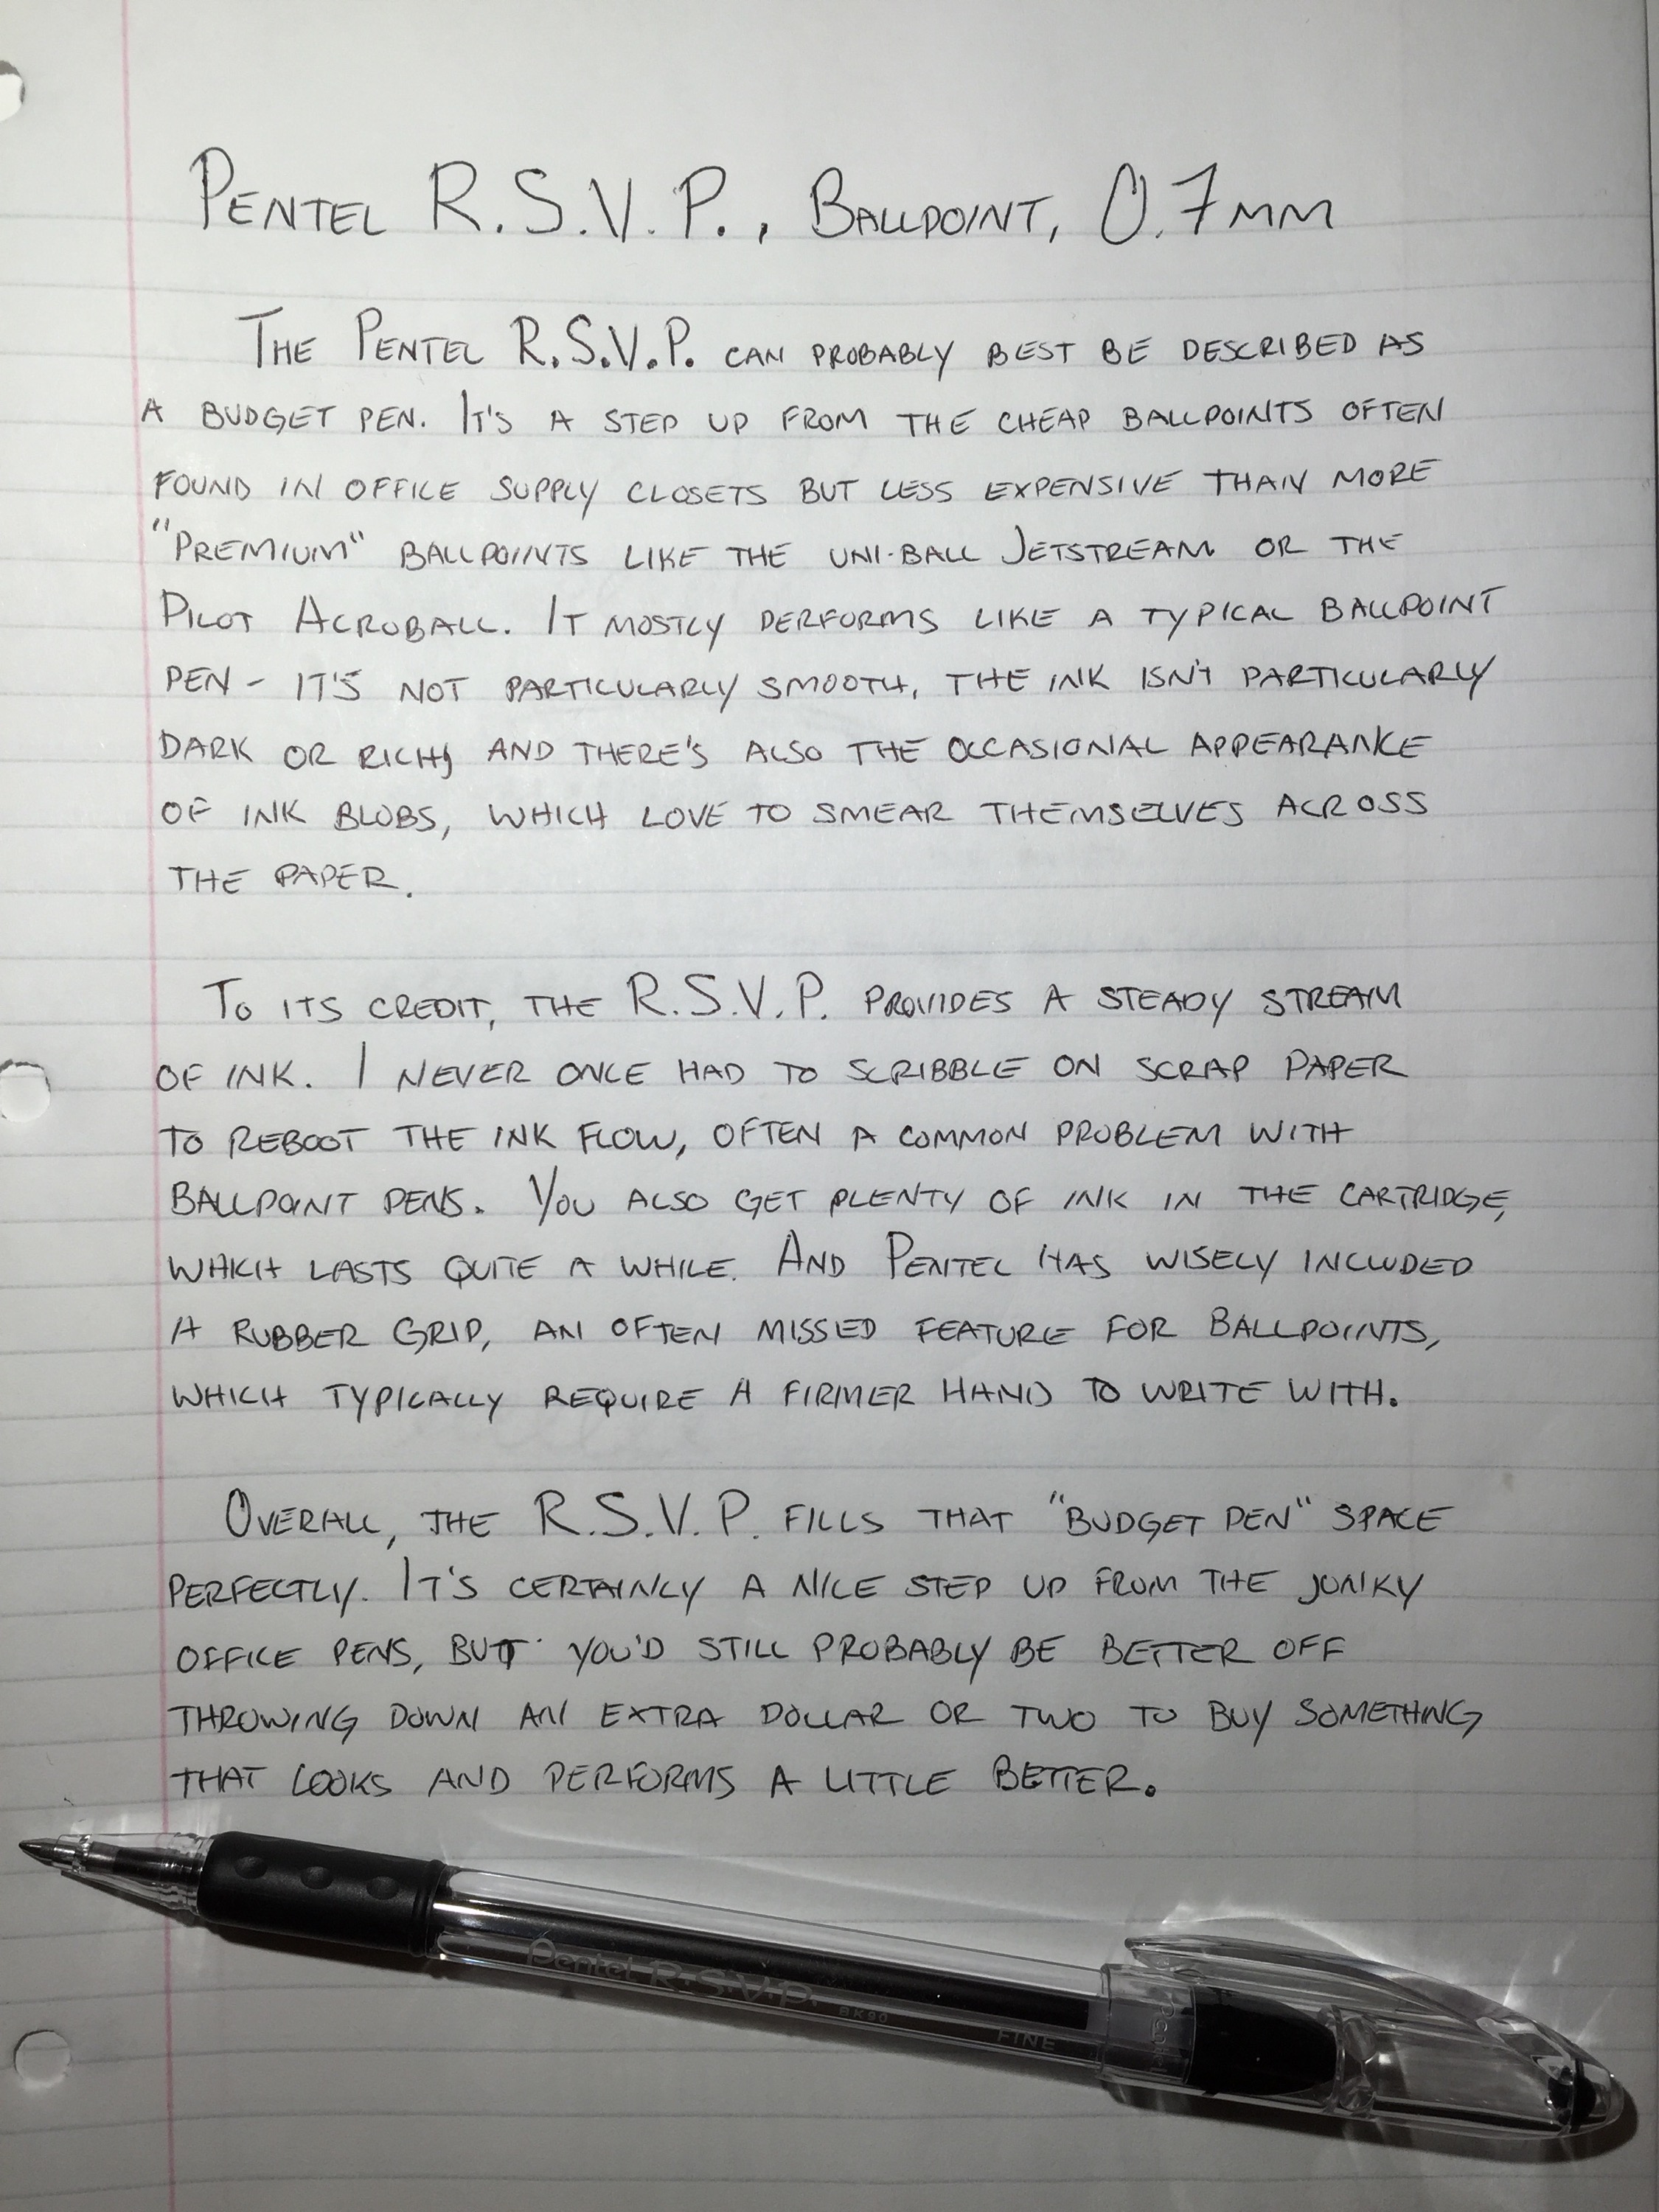 PENTEL R.S.V.P., BALLPOINT, 0.7MM
THE PENTEL R.S.V.P. CAN PROBABLY BEST BE DESCRIBED AS
A BUDGET PEN. IT'S A STEP UP FROM THE CHEAP BALLPOINTS OFTEN
FOUND IN OFFICE SUPPLY CLOSETS BUT LESS EXPENSIVE THAN MORE
"PREMIUM" BALLPOINTS LIKE THE UNI-BALL JETSTREAM OR THE
PILOT ACROBALL. IT MOSTLY PERFORMS LIKE A TYPICAL BALLPOINT
PEN - IT'S NOT PARTICULARLY SMOOTH, THE INK ISN'T PARTICULARLY
DARK OR RICH, AND THERE'S ALSO THE OCCASIONAL APPEARANCE
OF INK BLOBS, WHICH LOVE TO SMEAR THEMSELVES ACROSS
THE PAPER.
TO ITS CREDIT, THE R.S.V.P. PROVIDES A STEADY STREAM
OF INK. I NEVER ONCE HAD TO SCRIBBLE ON SCRAP PAPER
TO REBOOT THE INK FLOW, OFTEN A COMMON PROBLEM WITH
BALLPOINT PENS. YOU ALSO GET PLENTY OF INK IN THE CARTRIDGE,
WHICH LASTS QUITE A WHILE. AND PENTEL HAS WISELY INCLUDED
A RUBBER GRIP, AN OFTEN MISSED FEATURE FOR BALLPOINTS,
WHICH TYPICALLY REQUIRE A FIRMER HAND TO WRITE WITH.
OVERALL, THE R.S.V.P. FILLS THAT "BUDGET PEN" SPACE
PERFECTLY. IT'S CERTAINLY A NICE STEP UP FROM THE JUNKY
OFFICE PENS, BUT YOU'D STILL PROBABLY BE BETTER OFF
THROWING DOWN AN EXTRA DOLLAR OR TWO TO BUY SOMETHING
THAT LOOKS AND PERFORMS A LITTLE BETTER.
Pentel R.S.V.P. BK90 FINE
Pentel